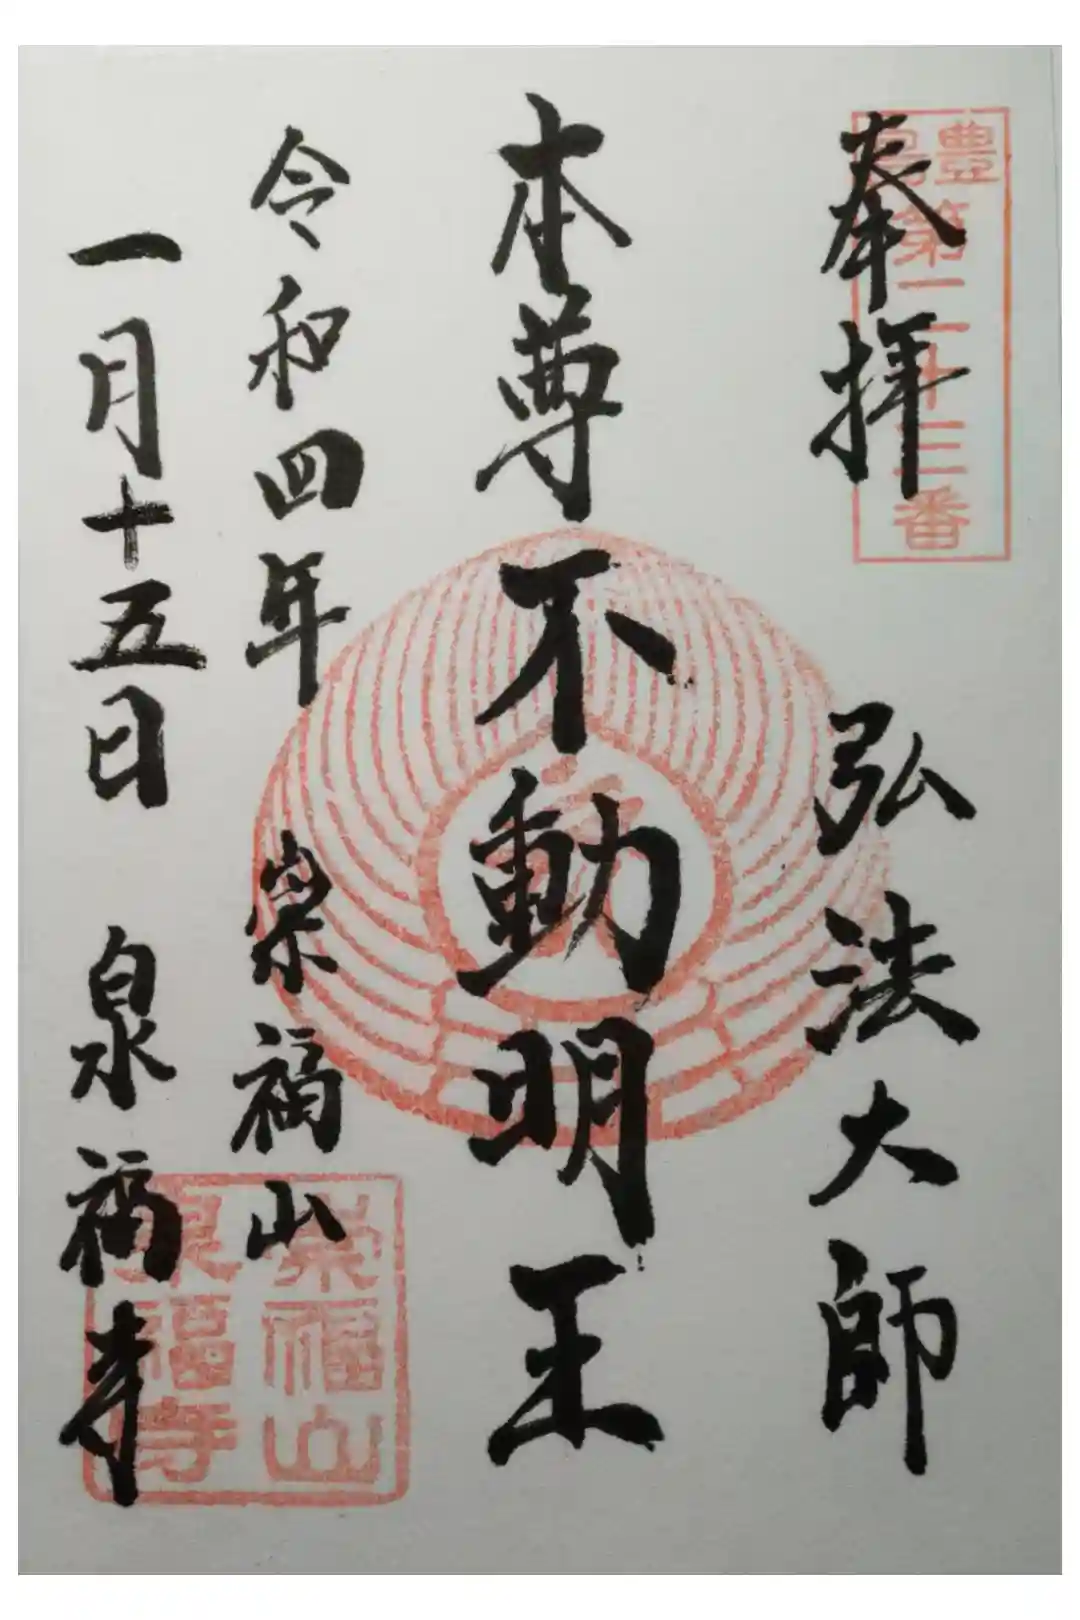 奉拝
豊島第二十三番
弘法大師
本尊不動明王
令和四年
崇福山
一月十五日
泉福寺
崇福山
泉福寺